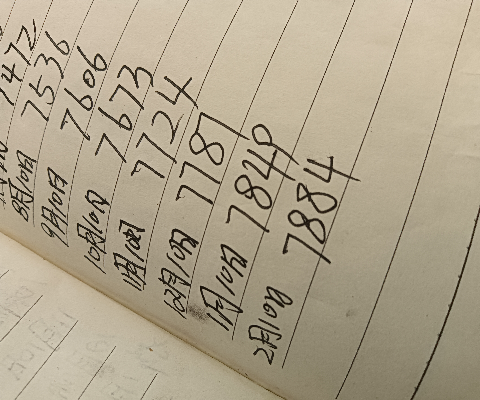 7472
8月10日 7536
9月10日 7606
10月10日 7673
11月10日 7724
12月10日 7787
1月10日 7849
2月10日 7884